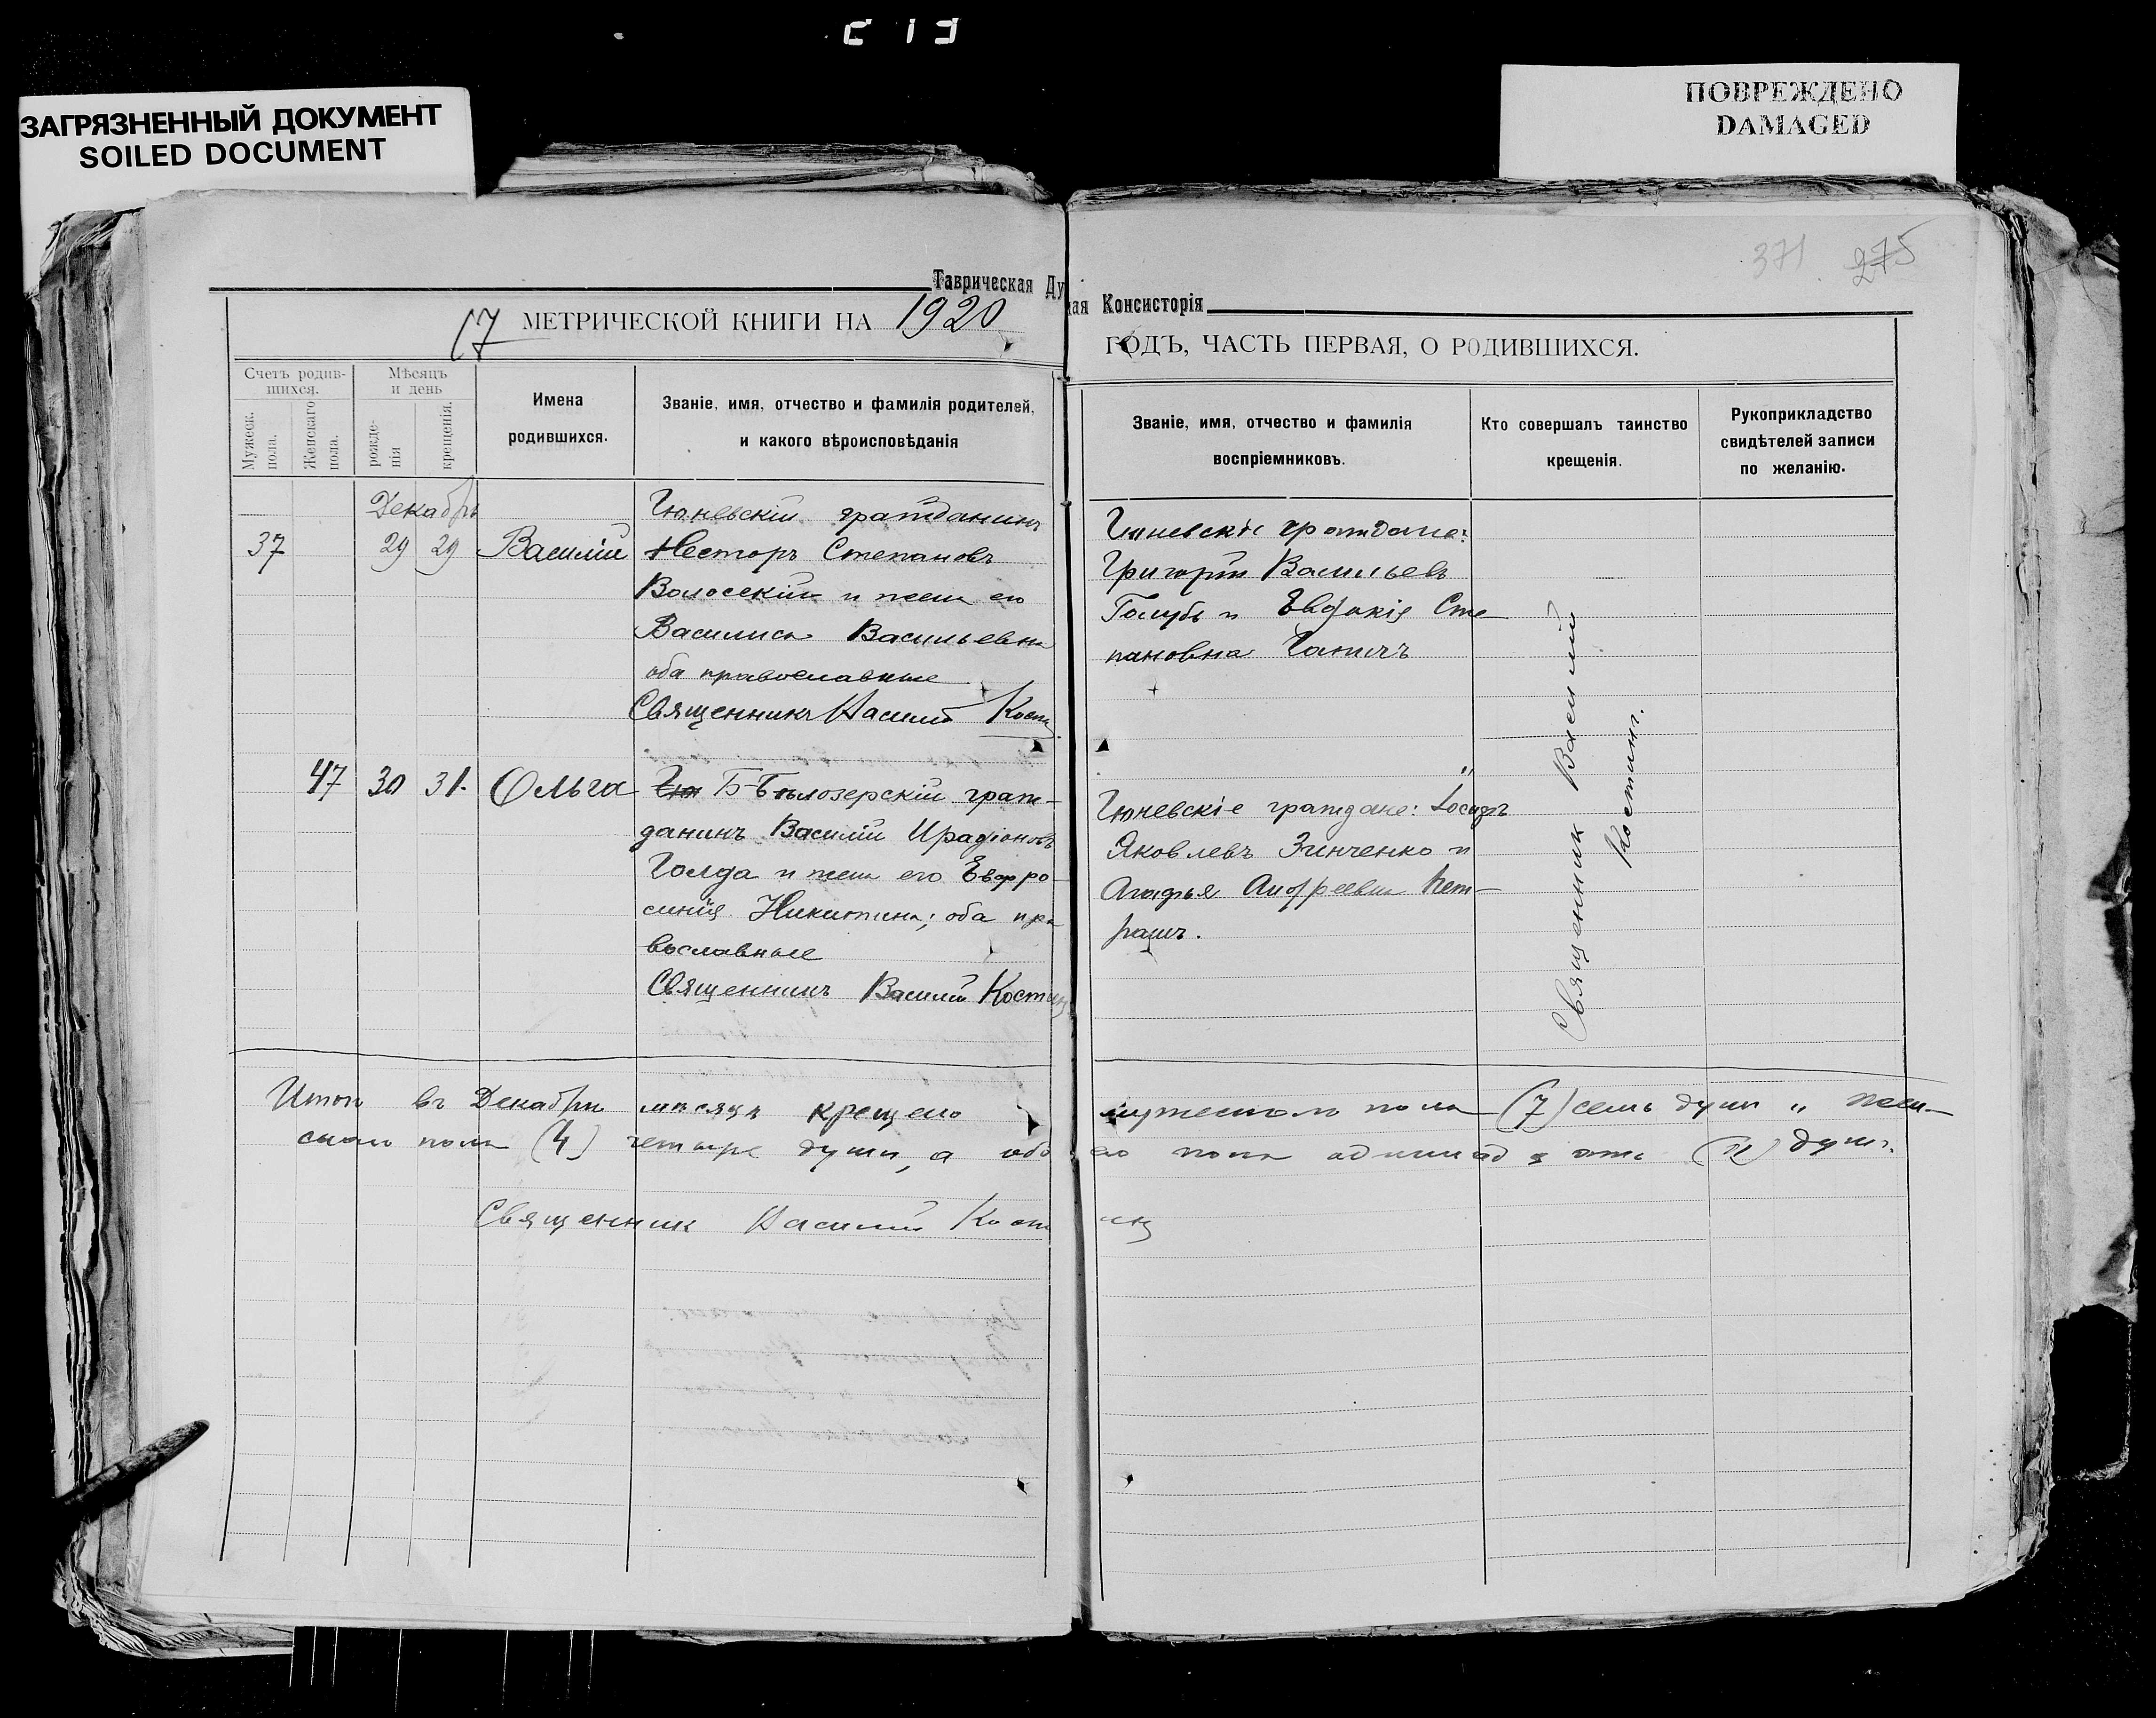 ЗАГРЯЗНЕННЫЙ ДОКУМЕНТ
SOILED DOCUMENT
ПОВРЕЖДЕНО
DAMAGED
371 275
Таврическая Ду
ная Консисторія
17 МЕТРИЧЕСКОЙ КНИГИ НА 1920
ГОДЪ, ЧАСТЬ ПЕРВАЯ, О РОДИВШИХСЯ.
Счетъ родив-
шихся.
Мужеск. пола.
Женскаго пола.
Мѣсяцъ
и день
рожде-
нія
крещенія.
Имена
родившихся.
Званіе, имя, отчество и фамилія родителей,
и какого вѣроисповѣданія
Званіе, имя, отчество и фамилія
воспріемниковъ.
Кто совершалъ таинство
крещенія.
Рукоприкладство
свидѣтелей записи
по желанію.
Декабрь
37 29 29 Василій
Гюневскій гражданинъ
Несторъ Степановъ
Волосскій и жена его
Василиса Васильевна
оба православные
Священникъ Василій Кост
Гюневскіе граждане:
Григорій Васильевъ
Голубь и Евдокія Сте
пановна
Священник Василий
Костинъ.
47 30 31. Ольга
Б-Бѣлозерскій граж-
данинъ Василій Ирадіоновъ
Голда и жена его Евфро
синія Никитина; оба пра
вославные
Священникъ Василій Костин
Гюневскіе граждане: Іосифъ
Яковлевъ Зинченко и
Агафья Андреевна Пет-
рашъ.
Итого въ Декабрѣ мѣсяцѣ крещено мужескаго пола (7) семь душъ и жен-
скаго пола (4) четыре души, а обо его пола одиннадцать (11) душъ.
Священник Василий Кост инъ